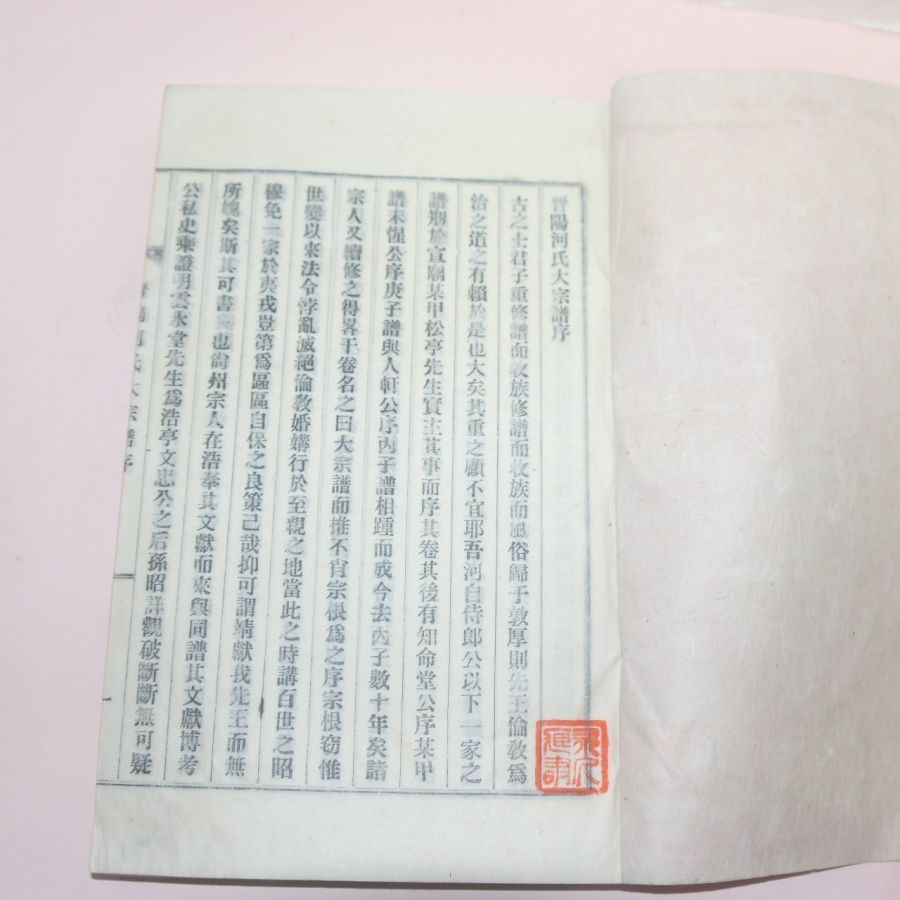 晋陽河氏大宗譜序
古之士君子重修譜而收族修譜而收族而風俗歸于敦厚則先王倫敎爲
治之道之有賴於是也大矣其重之顧不宜耶吾河自侍郎公以下一家之
譜刱於宣廟某甲松亭先生實主其事而序其卷其後有知命堂公序某甲
譜未惺公序庚子譜與人軒公序丙子譜相踵而成今去丙子數十年矣諸
宗人又續修之得畧干卷名之曰大宗譜而推不肖宗根爲之序宗根窃惟
世變以來法令悖亂滅絕倫敎婚媾行於至親之地當此之時講百世之昭
穆免一家於夷戎豈第爲區區自保之良策己哉抑可謂靖獻我先王而無
所媿矣斯其可書也尙州宗人在浩奉其文獻而來與同譜其文獻博考
公私史乘證明雲水堂先生爲浩亭文忠公之后孫昭詳觀破斷斷無可疑
晋陽河氏大宗譜序
一